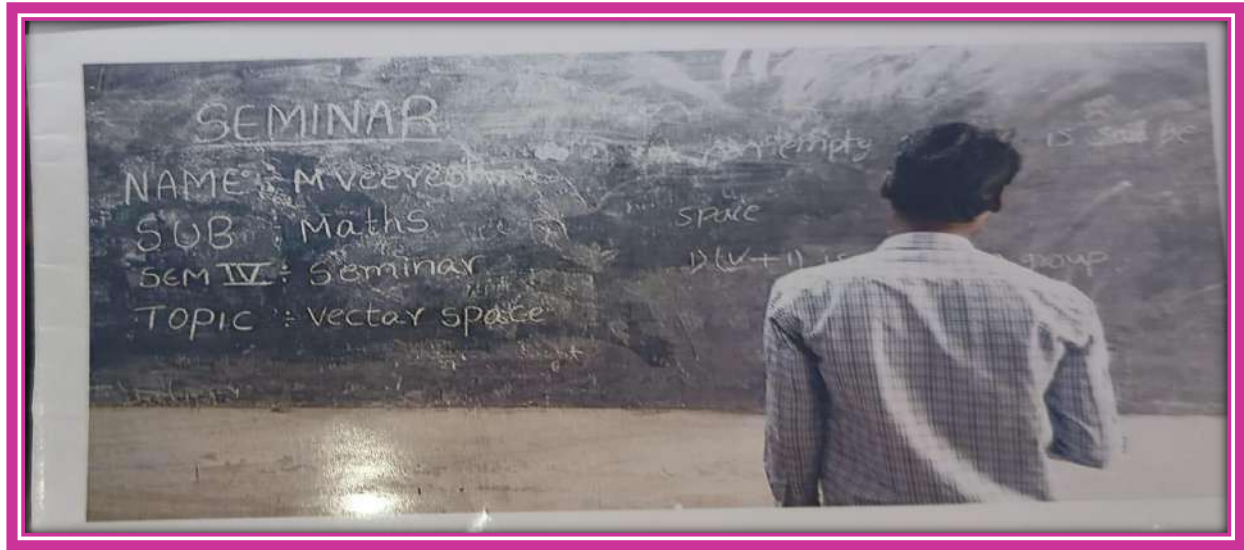 SEMINAR
NAME : M
SUB : Maths
SEM IV : Seminar
TOPIC : Vectar space
empty is be
space
1) (V+1) is group